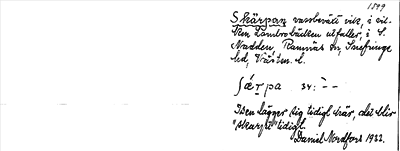 1899
Skärpan vassbeväxt vik, i vil-
ken Tambrobäcken utfaller, i S.
Nadden, Ramnäs sn, Snefringe
hd, Västm. l.
34:
Isen lägger sig tidigt här, det blir
"skarpt" tidigt.
Daniel Nordfors 1932.